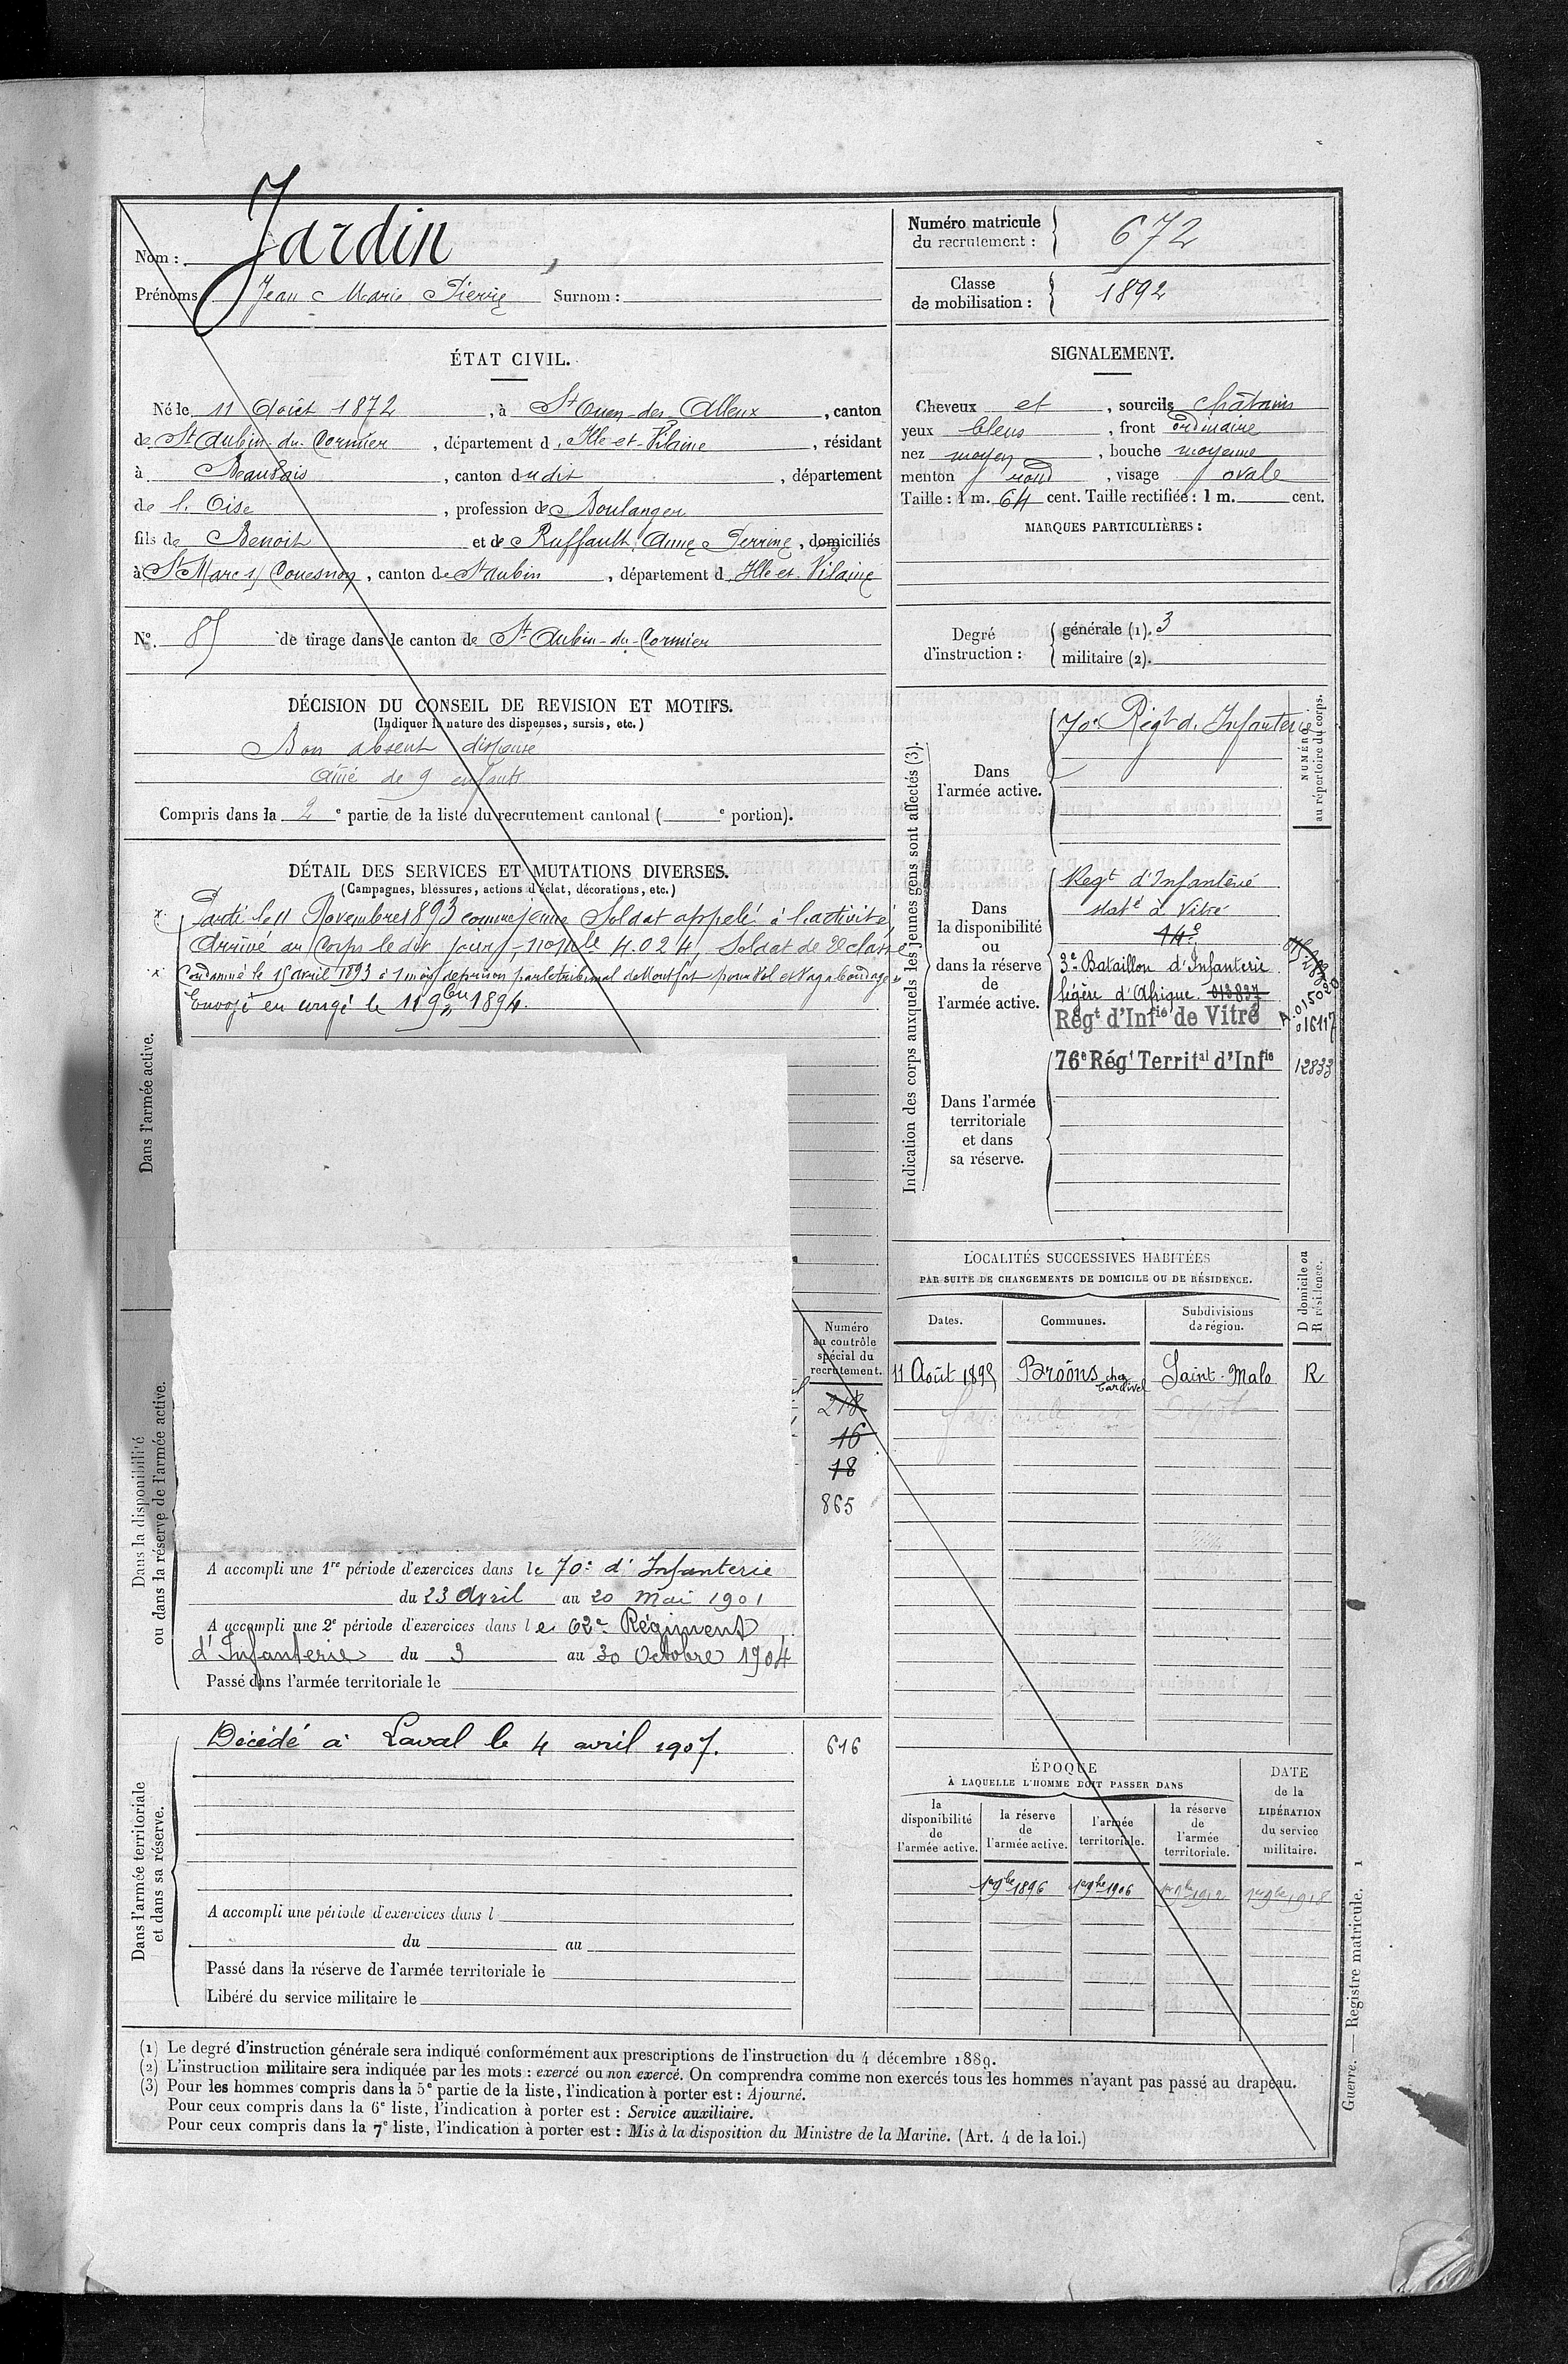 Nom : Jardin,
Prénoms Jean Marie Pierre Surnom :
ÉTAT CIVIL.
Né le 11 Août 1872, à St Ouen-des-Alleux, canton
de St Aubin-du-Cormier, département d Ille-et-Vilaine, résidant
à Beauvais, canton dudit, département
de l'Oise, profession de Boulanger
fils de Benoit et de Ruffault, Anne Perrine, domiciliés
à St Marc s/ Couesnon, canton de St Aubin, département d Ille et Vilaine
N° 85 de tirage dans le canton de St Aubin-du-Cormier
DÉCISION DU CONSEIL DE REVISION ET MOTIFS.
(Indiquer la nature des dispenses, sursis, etc.)
Bon absent dispensé
aîné de 9 enfants
Compris dans la 2e partie de la liste du recrutement cantonal ( e portion).
DÉTAIL DES SERVICES ET MUTATIONS DIVERSES.
(Campagnes, blessures, actions d'éclat, décorations, etc.)
Dans l'armée active.
Parti le 11 Novembre 1893 comme jeune Soldat appelé à l'activité,
Arrivé au Corps le dit jour, n° mle 4.024, Soldat de 2e classe
Condamné le 15 avril 1893 à 1 mois de prison par le tribunal de Montfort pour Vol et Vagabondage
Envoyé en congé le 11 9bre 1894.
Dans la disponibilité
ou dans la réserve de l'armée active.
Numéro
au contrôle
spécial du
recrutement.
218
16
18
865
A accompli une 1re période d'exercices dans le 70e d'Infanterie
du 23 Avril au 20 Mai 1901
A accompli une 2e période d'exercices dans le 62e Régiment
d'Infanterie du 3 au 30 Octobre 1904
Passé dans l'armée territoriale le
Dans l'armée territoriale
et dans sa réserve.
Décédé à Laval le 4 avril 1907. 616
A accompli une période d'exercices dans l
du au
Passé dans la réserve de l'armée territoriale le
Libéré du service militaire le
Numéro matricule
du recrutement : 672
Classe
de mobilisation : 1892
SIGNALEMENT.
Cheveux et, sourcils châtains
yeux bleus, front ordinaire
nez moyen, bouche moyenne
menton rond, visage ovale
Taille : 1 m. 64 cent. Taille rectifiée : 1 m. cent.
MARQUES PARTICULIÈRES :
Degré
d'instruction :
générale (1). 3
militaire (2).
Indication des corps auxquels les jeunes gens sont affectés (3).
NUMÉRO
au répertoire du corps.
Dans
l'armée active.
70e Régt d'Infanterie
Dans
la disponibilité
ou
dans la réserve
de
l'armée active.
Regt d'Infanterie
stat é à Vitré
14e
3e Bataillon d'Infanterie
légère d'Afrique. 013837
Régt d'Infie de Vitré
A.015020
016117
76e Régt Territal d'Infie
12833
Dans l'armée
territoriale
et dans
sa réserve.
LOCALITÉS SUCCESSIVES HABITÉES
PAR SUITE DE CHANGEMENTS DE DOMICILE OU DE RÉSIDENCE.
D domicile ou
R résidence.
Dates. Communes. Subdivisions
de région.
11 Août 1895 Broöns chez Cardivel Saint-Malo R
ÉPOQUE
À LAQUELLE L'HOMME DOIT PASSER DANS
DATE
de la
LIBÉRATION
du service
militaire.
la
disponibilité
de
l'armée active.
la réserve
de
l'armée active.
l'armée
territoriale.
la réserve
de
l'armée
territoriale.
1er 9bre 1896 1er 9bre 1906 1er 9bre 1912 1er 9bre 1918
Guerre. — Registre matricule. 1
(1) Le degré d'instruction générale sera indiqué conformément aux prescriptions de l'instruction du 4 décembre 1889.
(2) L'instruction militaire sera indiquée par les mots : exercé ou non exercé. On comprendra comme non exercés tous les hommes n'ayant pas passé au drapeau.
(3) Pour les hommes compris dans la 5e partie de la liste, l'indication à porter est : Ajourné.
Pour ceux compris dans la 6e liste, l'indication à porter est : Service auxiliaire.
Pour ceux compris dans la 7e liste, l'indication à porter est : Mis à la disposition du Ministre de la Marine. (Art. 4 de la loi.)